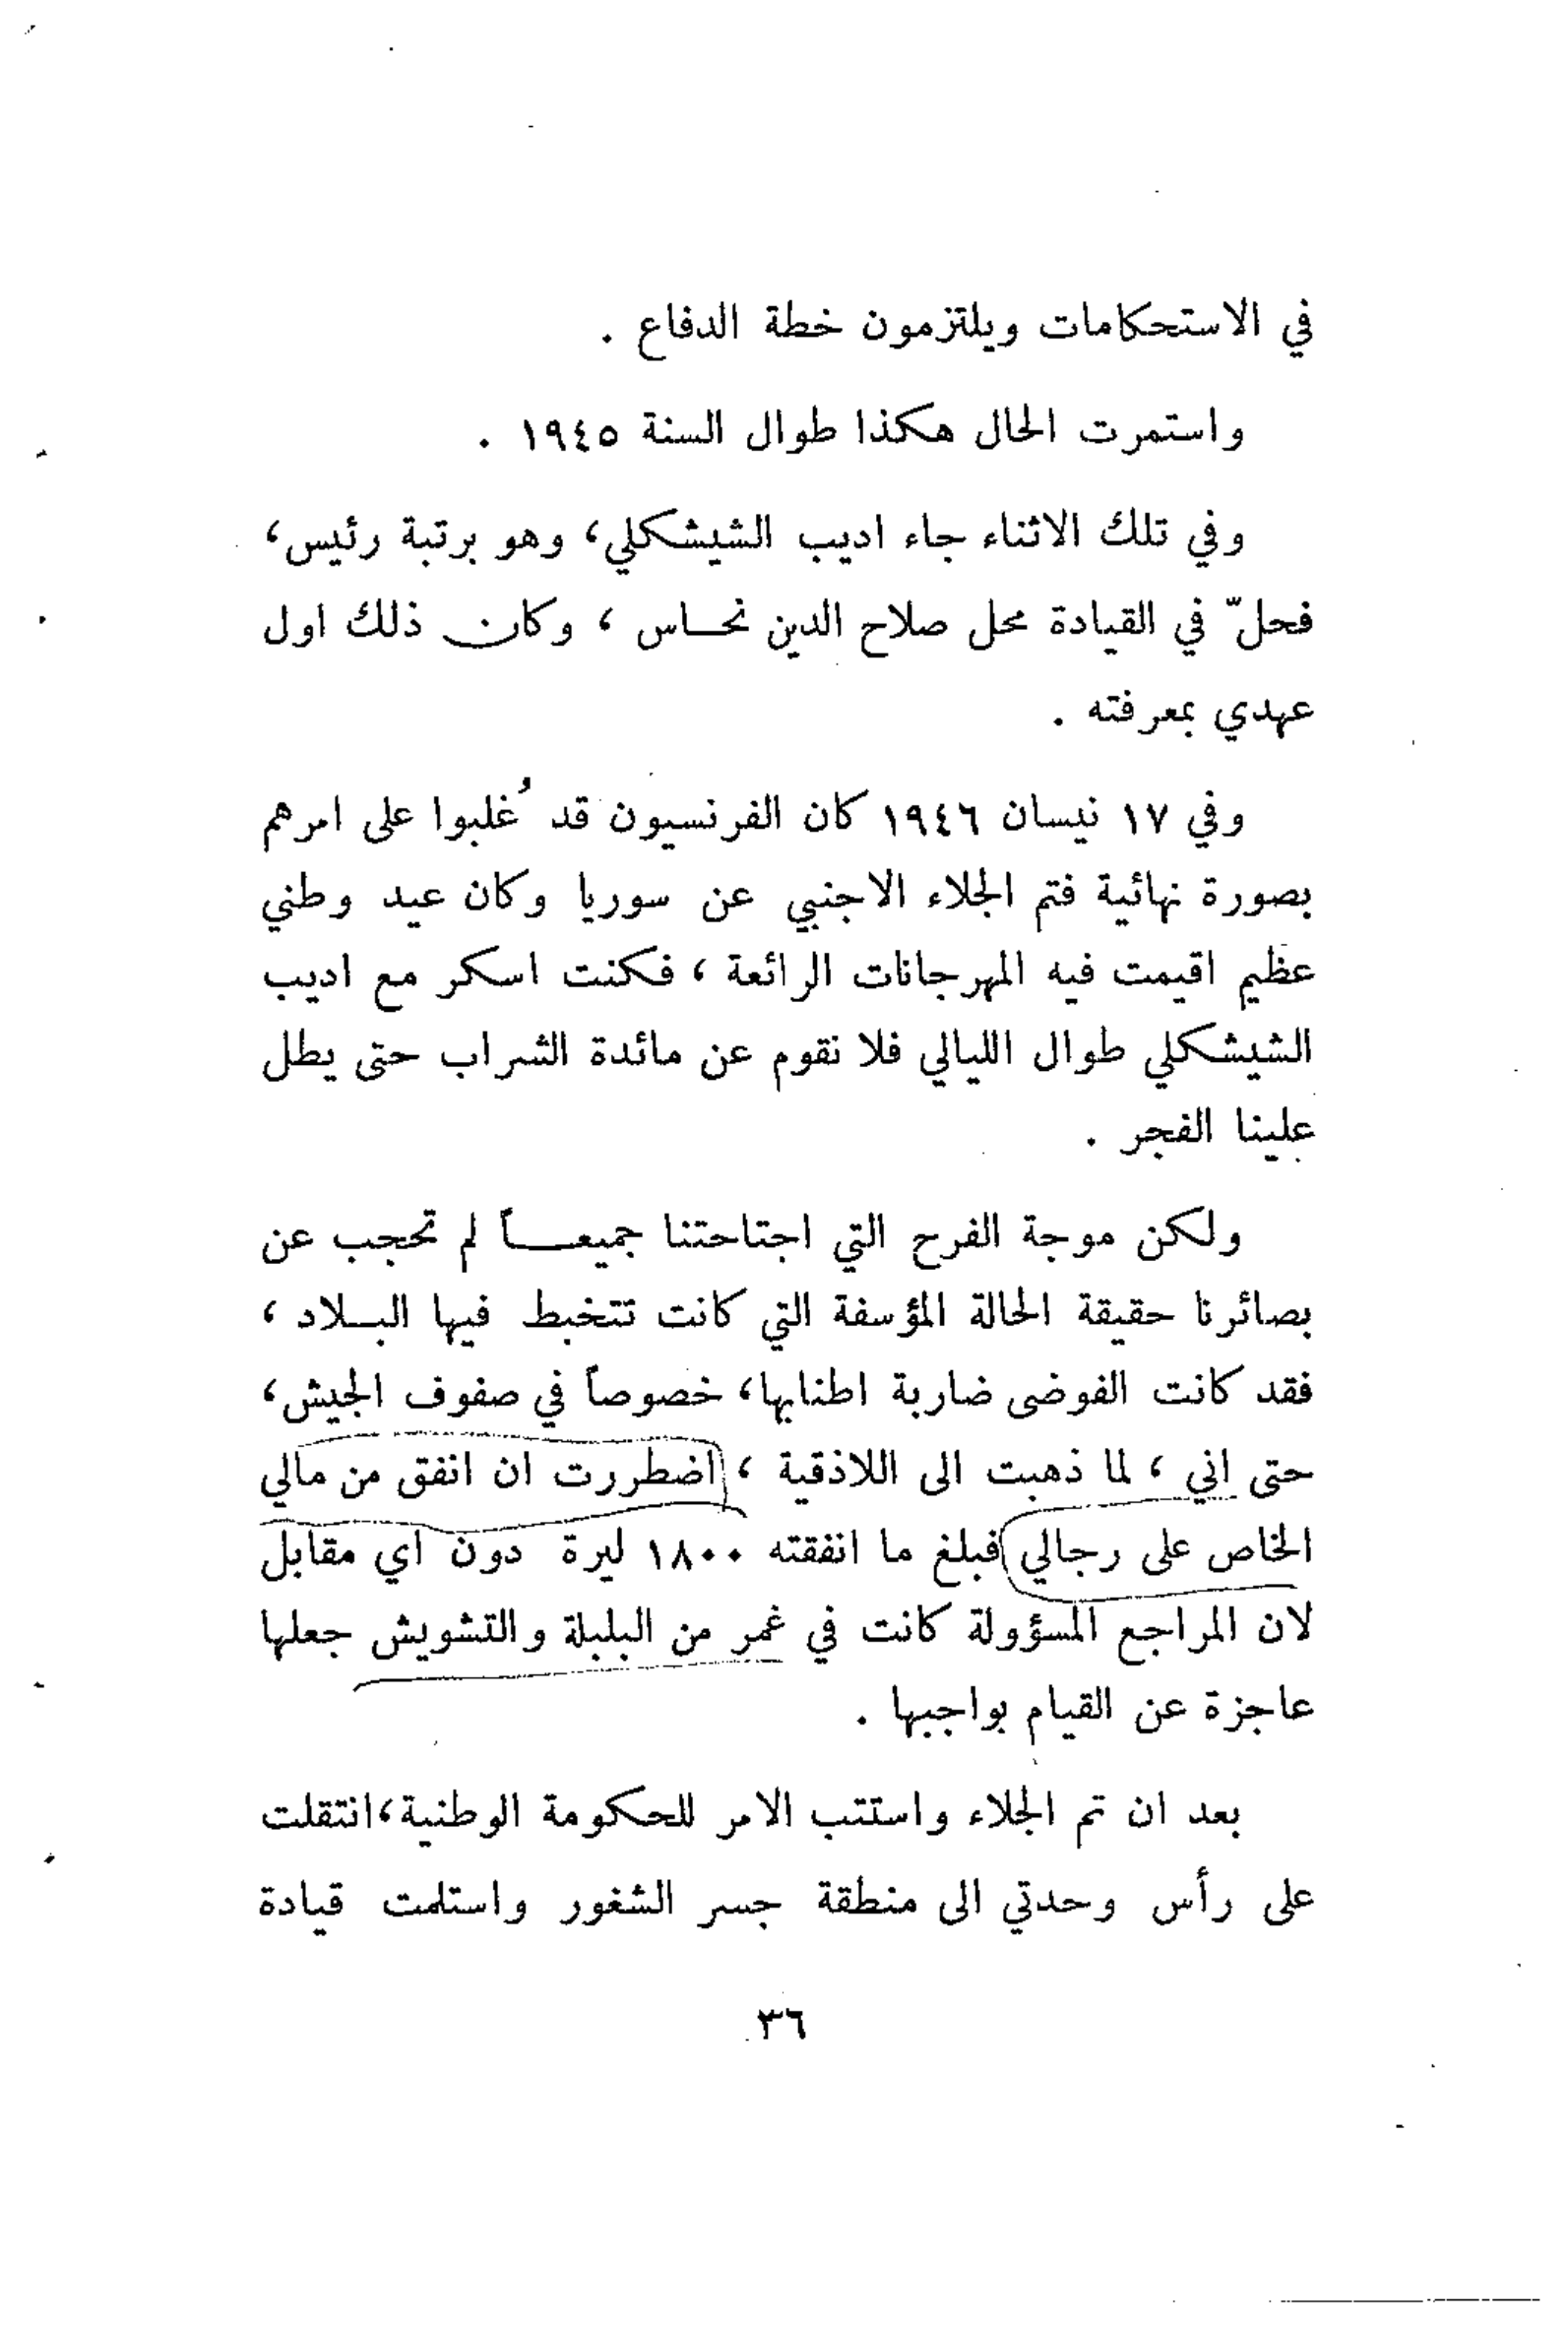 في الاستحكامات ويلتزمون خطة الدفاع .
واستمرت الحال هكذا طوال السنة ١٩٤٥ .
وفي تلك الاثناء جاء اديب الشيشكلي، وهو برتبة رئيس،
فحلّ في القيادة محل صلاح الدين نحـاس ، وكان ذلك اول
عهدي بمعرفته .
وفي ١٧ نيسان ١٩٤٦ كان الفرنسيون قد غُلبوا على امرهم
بصورة نهائية فتم الجلاء الاجنبي عن سوريا وكان عيد وطني
عظيم اقيمت فيه المهرجانات الرائعة ، فكنت اسكر مع اديب
الشيشكلي طوال الليالي فلا نقوم عن مائدة الشراب حتى يطل
علينا الفجر .
ولكن موجة الفرح التي اجتاحتنا جميعـاً لم تحجب عن
بصائرنا حقيقة الحالة المؤسفة التي كانت تتخبط فيها البـلاد ،
فقد كانت الفوضى ضاربة اطنابها، خصوصاً في صفوف الجيش،
حتى اني ، لما ذهبت الى اللاذقية ، اضطررت ان انفق من مالي
الخاص على رجالي فبلغ ما انفقته ١٨٠٠ ليرة دون اي مقابل
لان المراجع المسؤولة كانت في غمر من البلبلة والتشويش جعلها
عاجزة عن القيام بواجبها .
بعد ان تم الجلاء واستتب الامر للحكومة الوطنية،انتقلت
على رأس وحدتي الى منطقة جسر الشغور واستلمت قيادة
٣٦